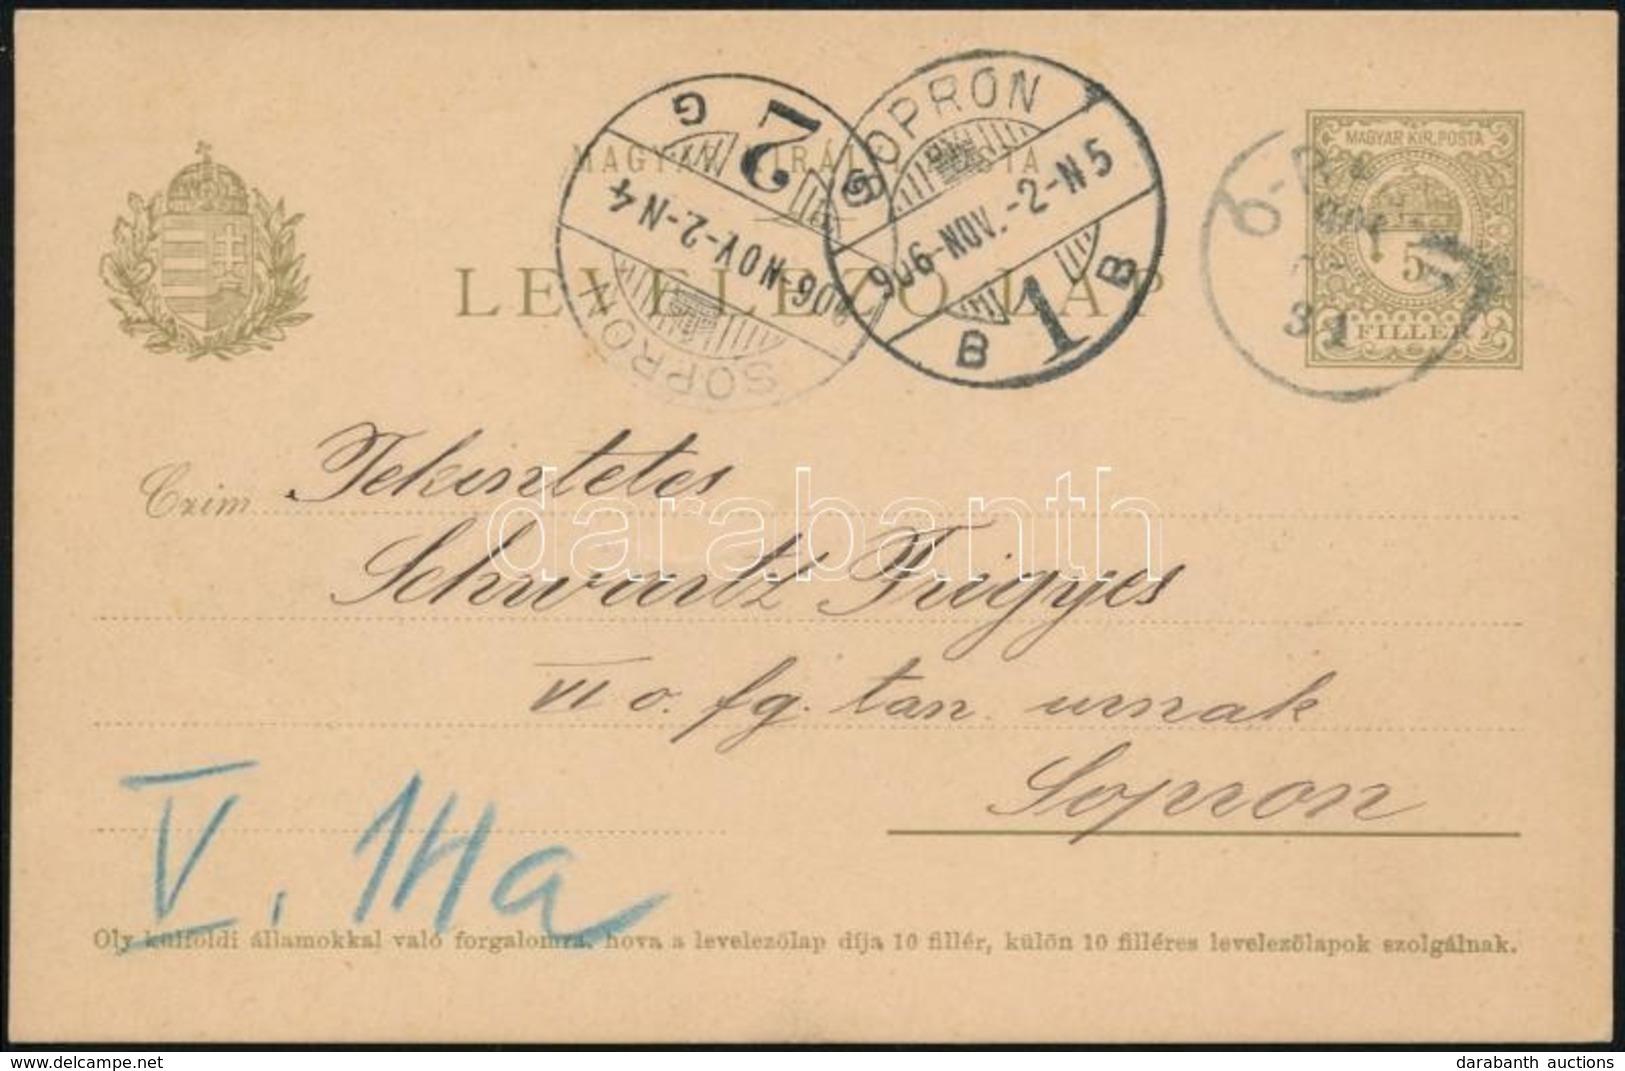 MAGYAR KIR. POSTA
5
FILLÉR
MAGYAR KIRÁLYI POSTA
LEVELEZŐ LAP
SOPRON
906-NOV.-2-N5
B 1 B
SOPRON
906-NOV-2-N4
G 2 G
Ó-
31
Czim Tekintetes
Schwartz Frigyes
VI o. fg. tan. urnak
Sopron
V. 14a
Oly külföldi államokkal való forgalomra, hova a levelezőlap díja 10 fillér, külön 10 filléres levelezőlapok szolgálnak.
darabanth
darabanth auctions